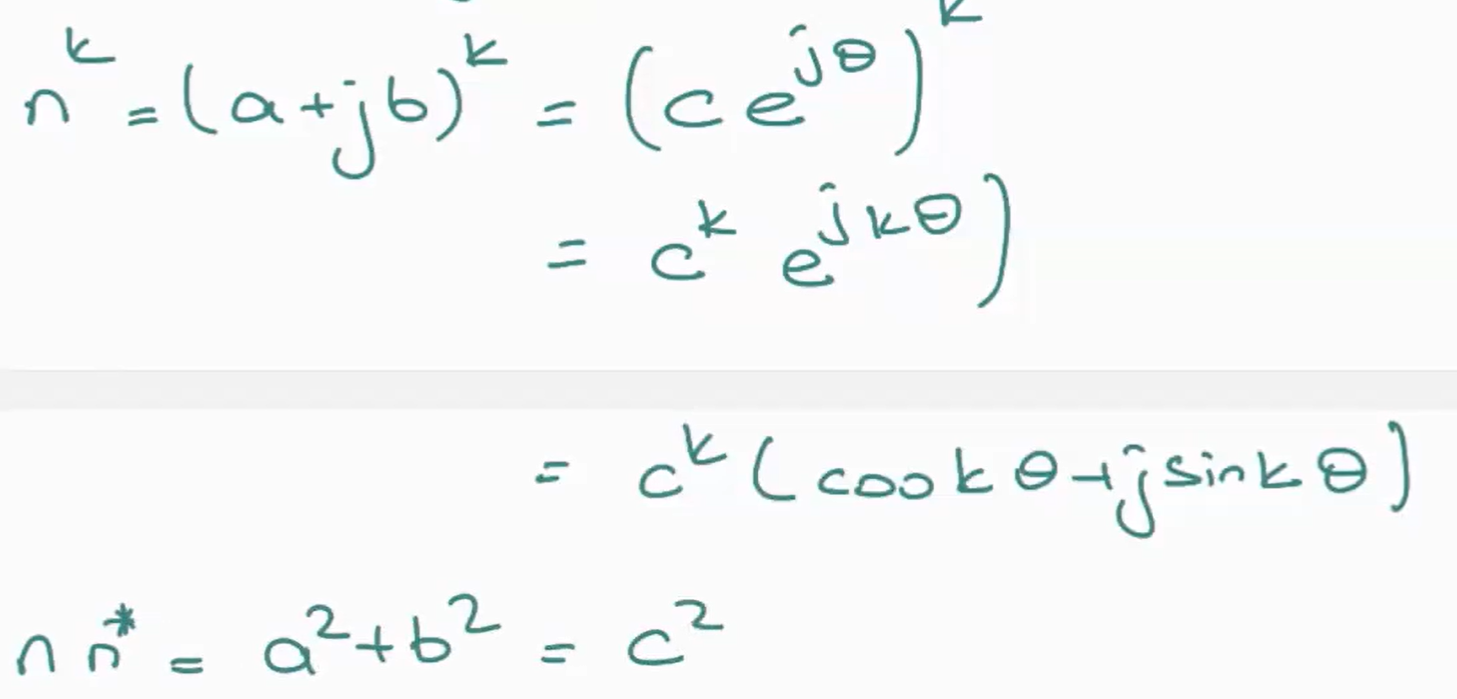 n^k = (a+jb)^k = (c e^{jθ})^k
= c^k e^{jkθ})
= c^k (cos kθ + j sin kθ)
n n* = a² + b² = c²